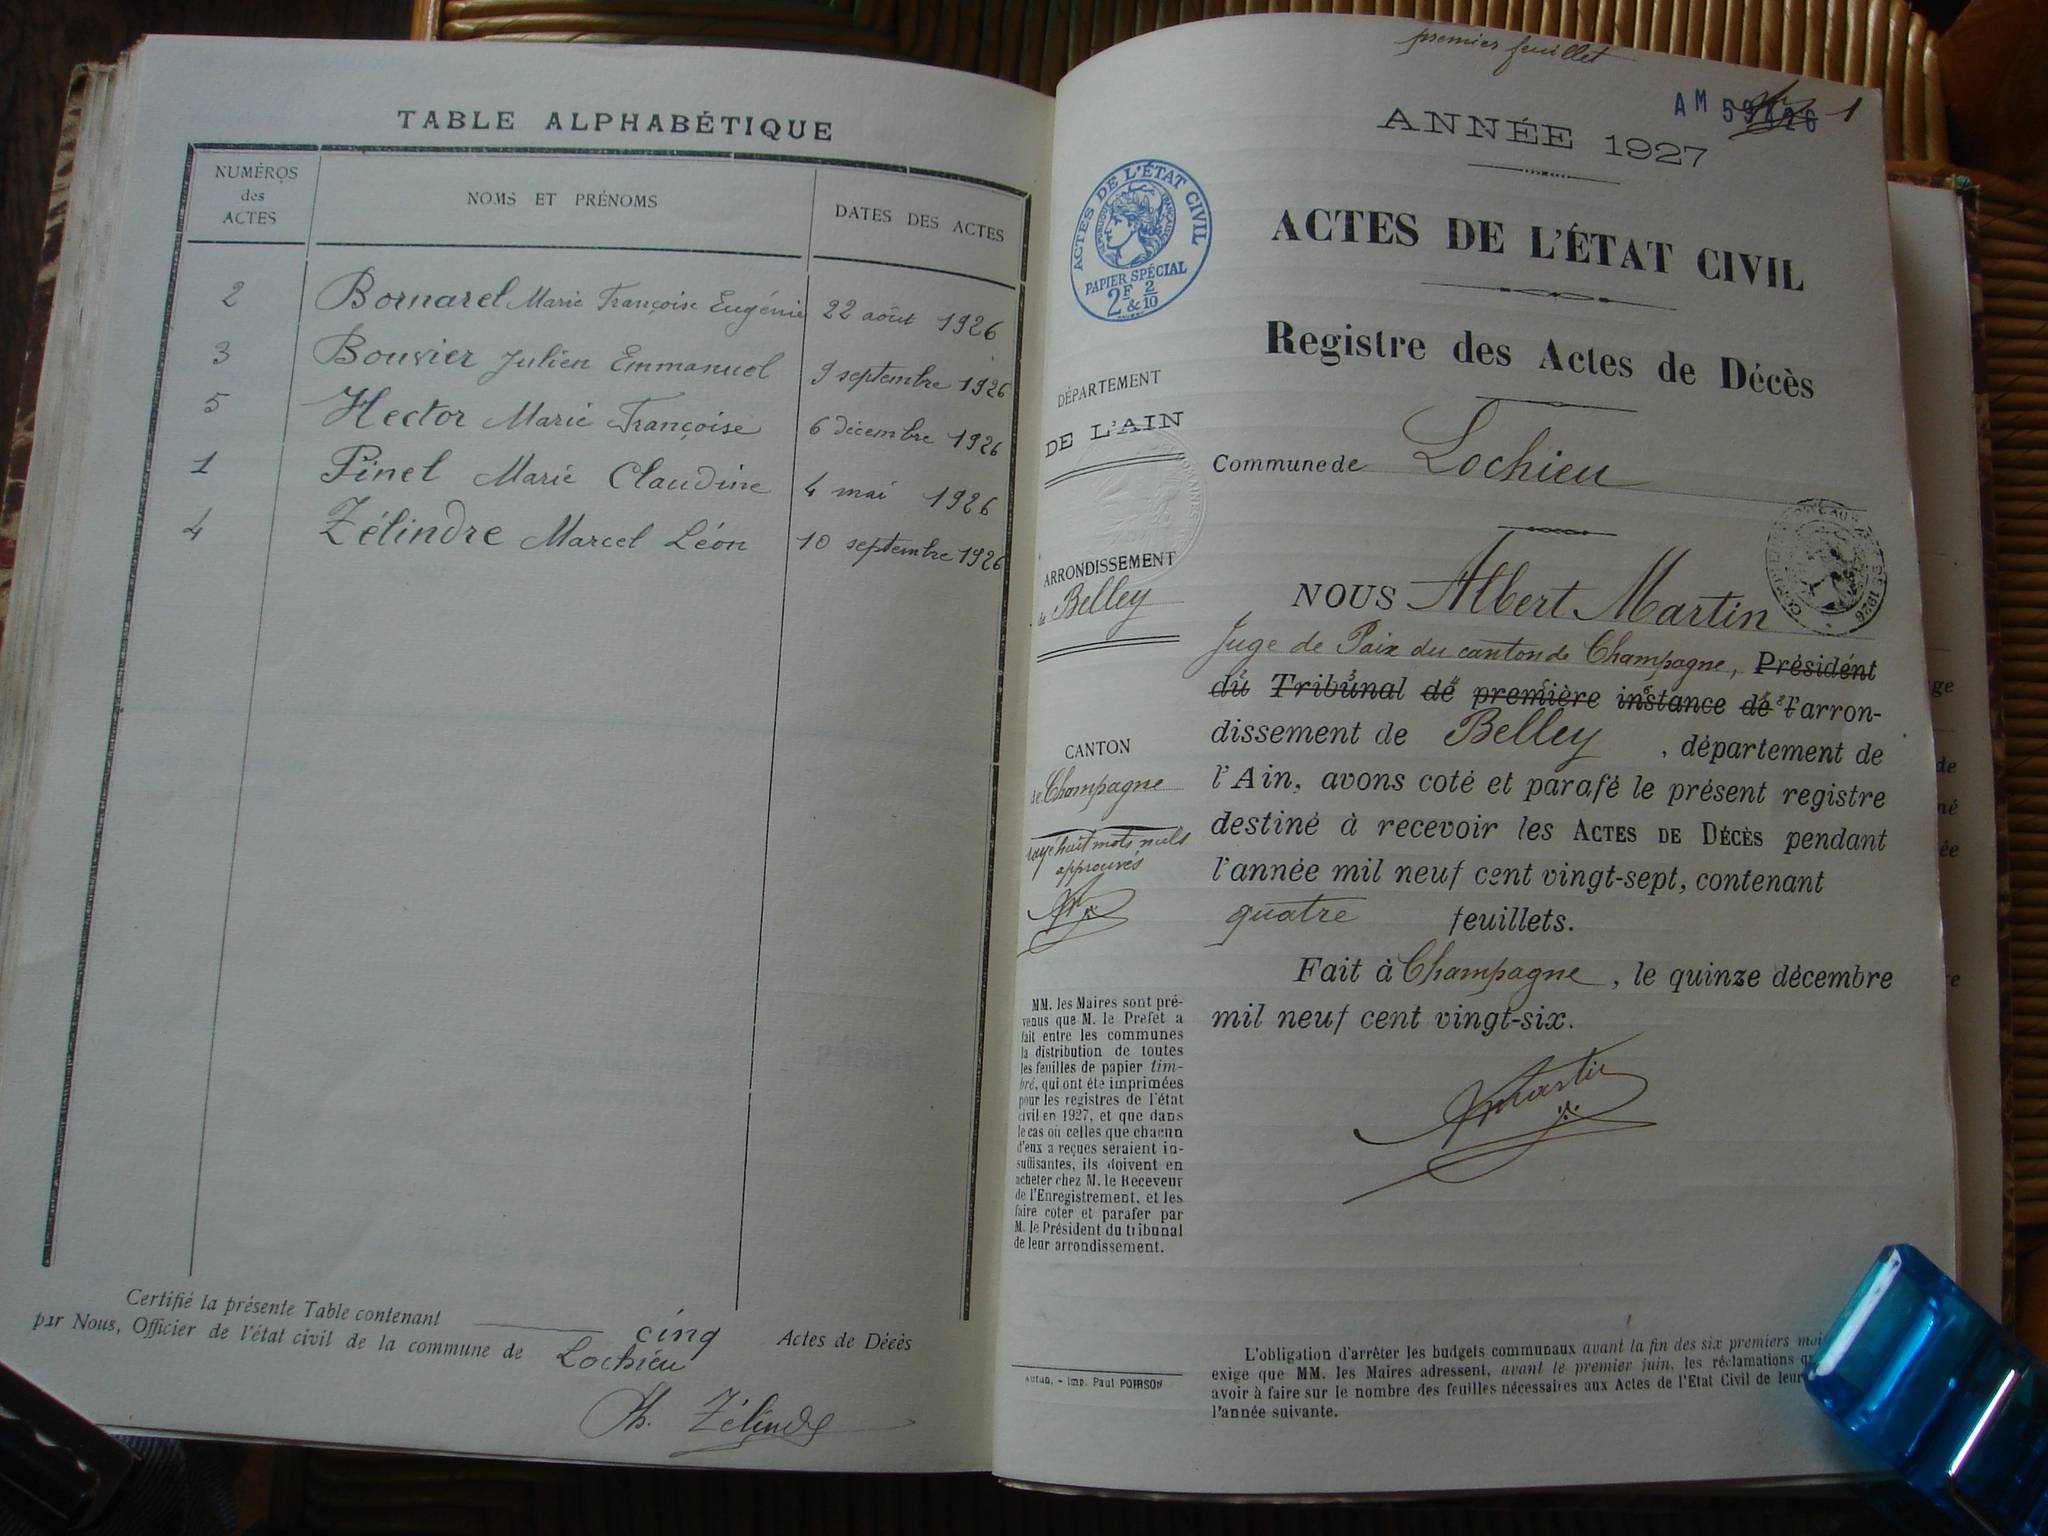 TABLE ALPHABÉTIQUE
NUMÉROS des ACTES
NOMS ET PRÉNOMS
DATES DES ACTES
2 Bornarel Marie Françoise Eugénie 22 août 1926
3 Bouvier Julien Emmanuel 9 septembre 1926
5 Hector Marie Françoise 6 décembre 1926
1 Pinel Marie Claudine 4 mai 1926
4 Zélindre Marcel Léon 10 septembre 1926
Certifié la présente Table contenant cinq Actes de Décès
par Nous, Officier de l'état civil de la commune de Lochieu
Zélindre
premier feuillet
AM 1
ANNÉE 1927
ACTES DE L'ÉTAT CIVIL
RÉPUBLIQUE FRANÇAISE
PAPIER SPÉCIAL
2F & 2/10
ACTES DE L'ÉTAT CIVIL
Registre des Actes de Décès
DÉPARTEMENT
DE L'AIN
Commune de Lochieu
ARRONDISSEMENT
de Belley
CANTON
de Champagne
rayé huit mots nuls
approuvés
NOUS Albert Martin
Juge de Paix du canton de Champagne, Président
du Tribunal de première instance de l'arron-
dissement de Belley, département de
l'Ain, avons coté et parafé le présent registre
destiné à recevoir les ACTES DE DÉCÈS pendant
l'année mil neuf cent vingt-sept, contenant
quatre feuillets.
Fait à Champagne, le quinze décembre
mil neuf cent vingt-six.
Martin
MM. les Maires sont pré-
venus que M. le Préfet a
fait entre les communes
la distribution de toutes
les feuilles de papier tim-
bré, qui ont été imprimées
pour les registres de l'état
civil en 1927, et que dans
le cas où celles que chacun
d'eux a reçues seraient in-
suffisantes, ils doivent en
acheter chez M. le Receveur
de l'Enregistrement, et les
faire coter et parafer par
M. le Président du tribunal
de leur arrondissement.
Autun, - Imp. Paul POIRSON
L'obligation d'arrêter les budgets communaux avant la fin des six premiers moi
exige que MM. les Maires adressent, avant le premier juin, les réclamations
avoir à faire sur le nombre des feuilles nécessaires aux Actes de l'Etat Civil de leur
l'année suivante.